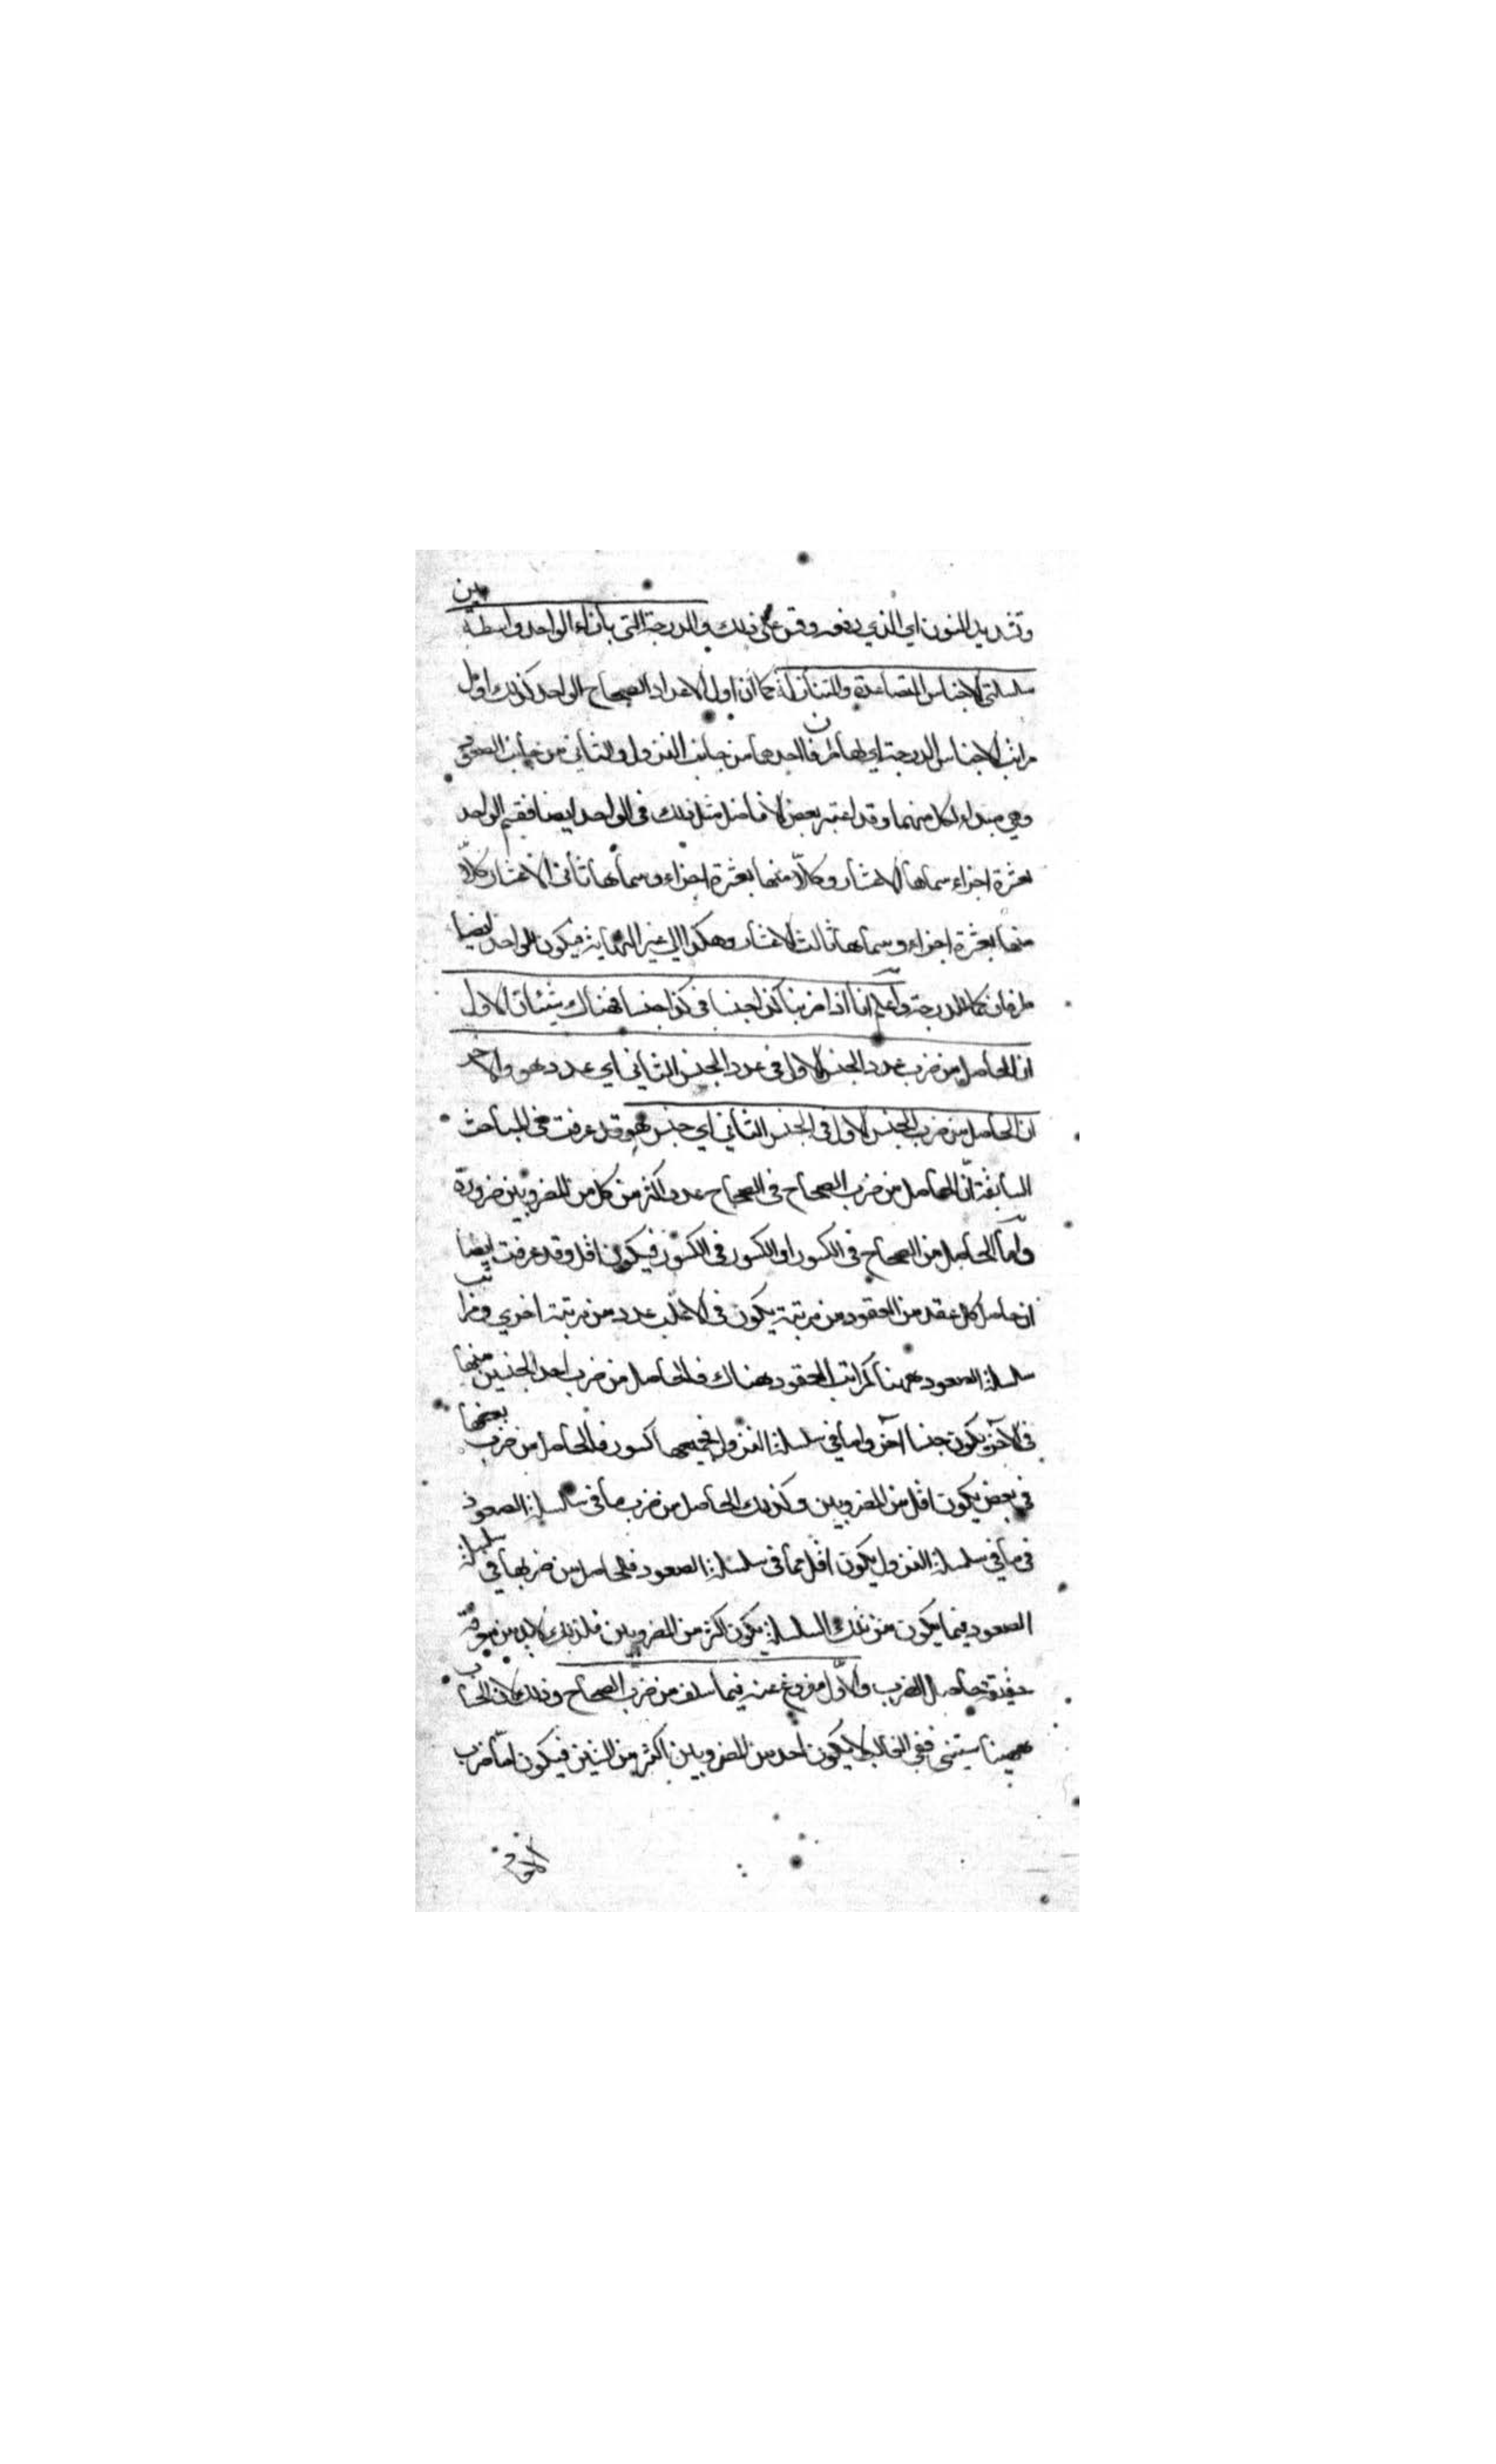 وتشديد النون اي الذي رفعه وقس على ذلك والدرجة التي بازاء الواحد واسطة بين
سلسلتي الاجناس المتصاعدة والمتنازلة كما ان اول الاعداد الصحاح الواحد كذلك اول
مراتب الاجناس الدرجة اي لها طرفان احدهما من جانب النزول والثاني من جانب الصعود
وهي مبداء لكل منهما وقد اعتبر بعض الافاضل مثل ذلك في الواحد ايضا فقسم الواحد
بعشرة اجزاء سماها الاعشار وكلا منها بعشرة اجزاء وسماها ثاني الاعشار وكلا
منها بعشرة اجزاء وسماها ثالث الاعشار وهكذا الى غير النهاية فيكون للواحد ايضا
طرفان كما للدرجة واعلم انا اذا ضربنا كذا جنسا في كذا جنسا فهناك شيئان الاول
ان الحاصل من ضرب عدد الجنس الاول في عدد الجنس الثاني اي عدد هو والآخر
ان الحاصل من ضرب الجنس الاول في الجنس الثاني اي جنس هو وقد عرفت في المباحث
السابقة ان الحاصل من ضرب الصحاح في الصحاح عدد اكثر من كل من المضروبين ضرورة
واما الحاصل من الصحاح في الكسور او الكسور في الكسور فيكون اقل وقد عرفت ايضا
ان حاصل كل عقد من العقود من مرتبة يكون في الاغلب عدد من مرتبة اخرى ومراتب
سلسلة الصعود ههنا كمراتب العقود هناك فالحاصل من ضرب احد الجنسين منها
في الآخر يكون جنسا آخر واما في سلسلة النزول فجميعها كسور فالحاصل من ضرب بعضها
في بعض يكون اقل من المضروبين وكذلك الحاصل من ضرب ما في سلسلة الصعود
في ما في سلسلة النزول يكون اقل مما في سلسلة الصعود فالحاصل من ضربها في سلسلة
الصعود فيما يكون من تلك السلسلة يكون اكثر من المضروبين فلذلك لابد من معرفة
حقيقة حاصل الضرب والاول مفروغ عنه فيما سلف من ضرب الصحاح وذلك لان الحساب
ههنا ستيني ففي الغالب لا يكون احد من المضروبين اكثر من الستين فيكون اما ضرب